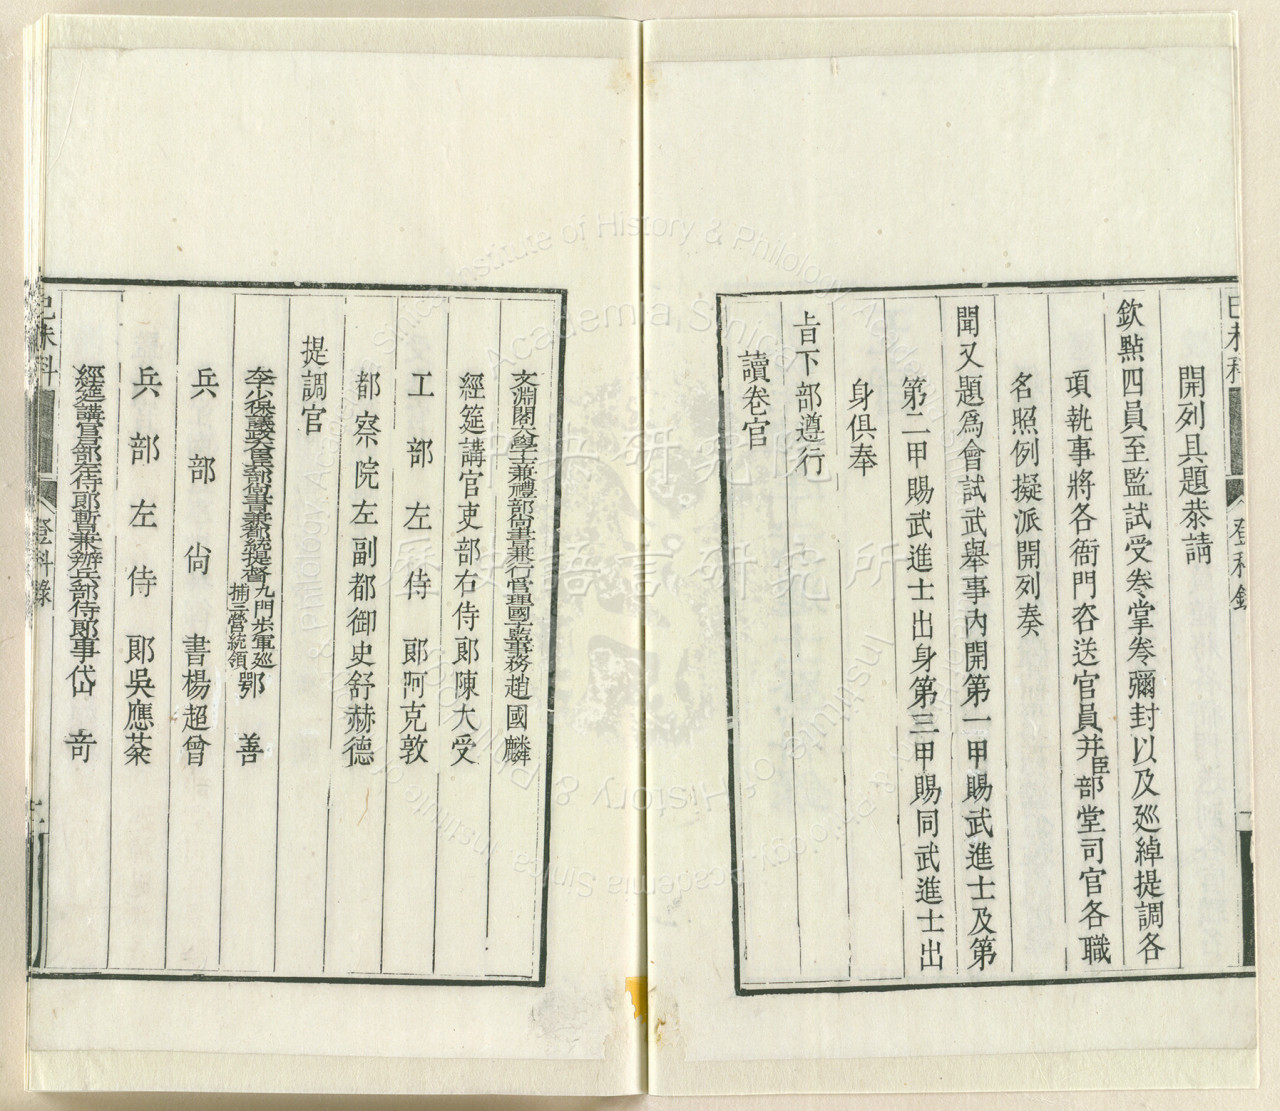 開列具題恭請
欽點四員至監試受卷堂卷彌封以及巡綽提調各
項執事將各衙門咨送官員并臣部堂司官各職
名照例擬派開列奏
聞又題爲會試武舉事內開第一甲賜武進士及第
第二甲賜武進士出身第三甲賜同武進士出
身俱奉
旨下部遵行
讀卷官
文淵閣大學士兼禮部尚書兼行管理國子監事務趙國麟
經筵講官吏部右侍郎陳大受
工部左侍郎阿克敦
都察院左副都御史舒赫德
提調官
太子少保議政大臣兵部尚書兼都統提督九門步軍巡捕三營統領鄂善
兵部尙書楊超曾
兵部左侍郎吳應棻
經筵講官戶部左侍郎暫兼辦兵部侍郎事岱奇
己未科
登科錄